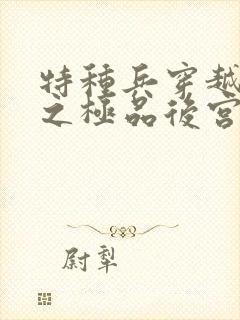 特種兵穿越
之極品後宮
尉犁